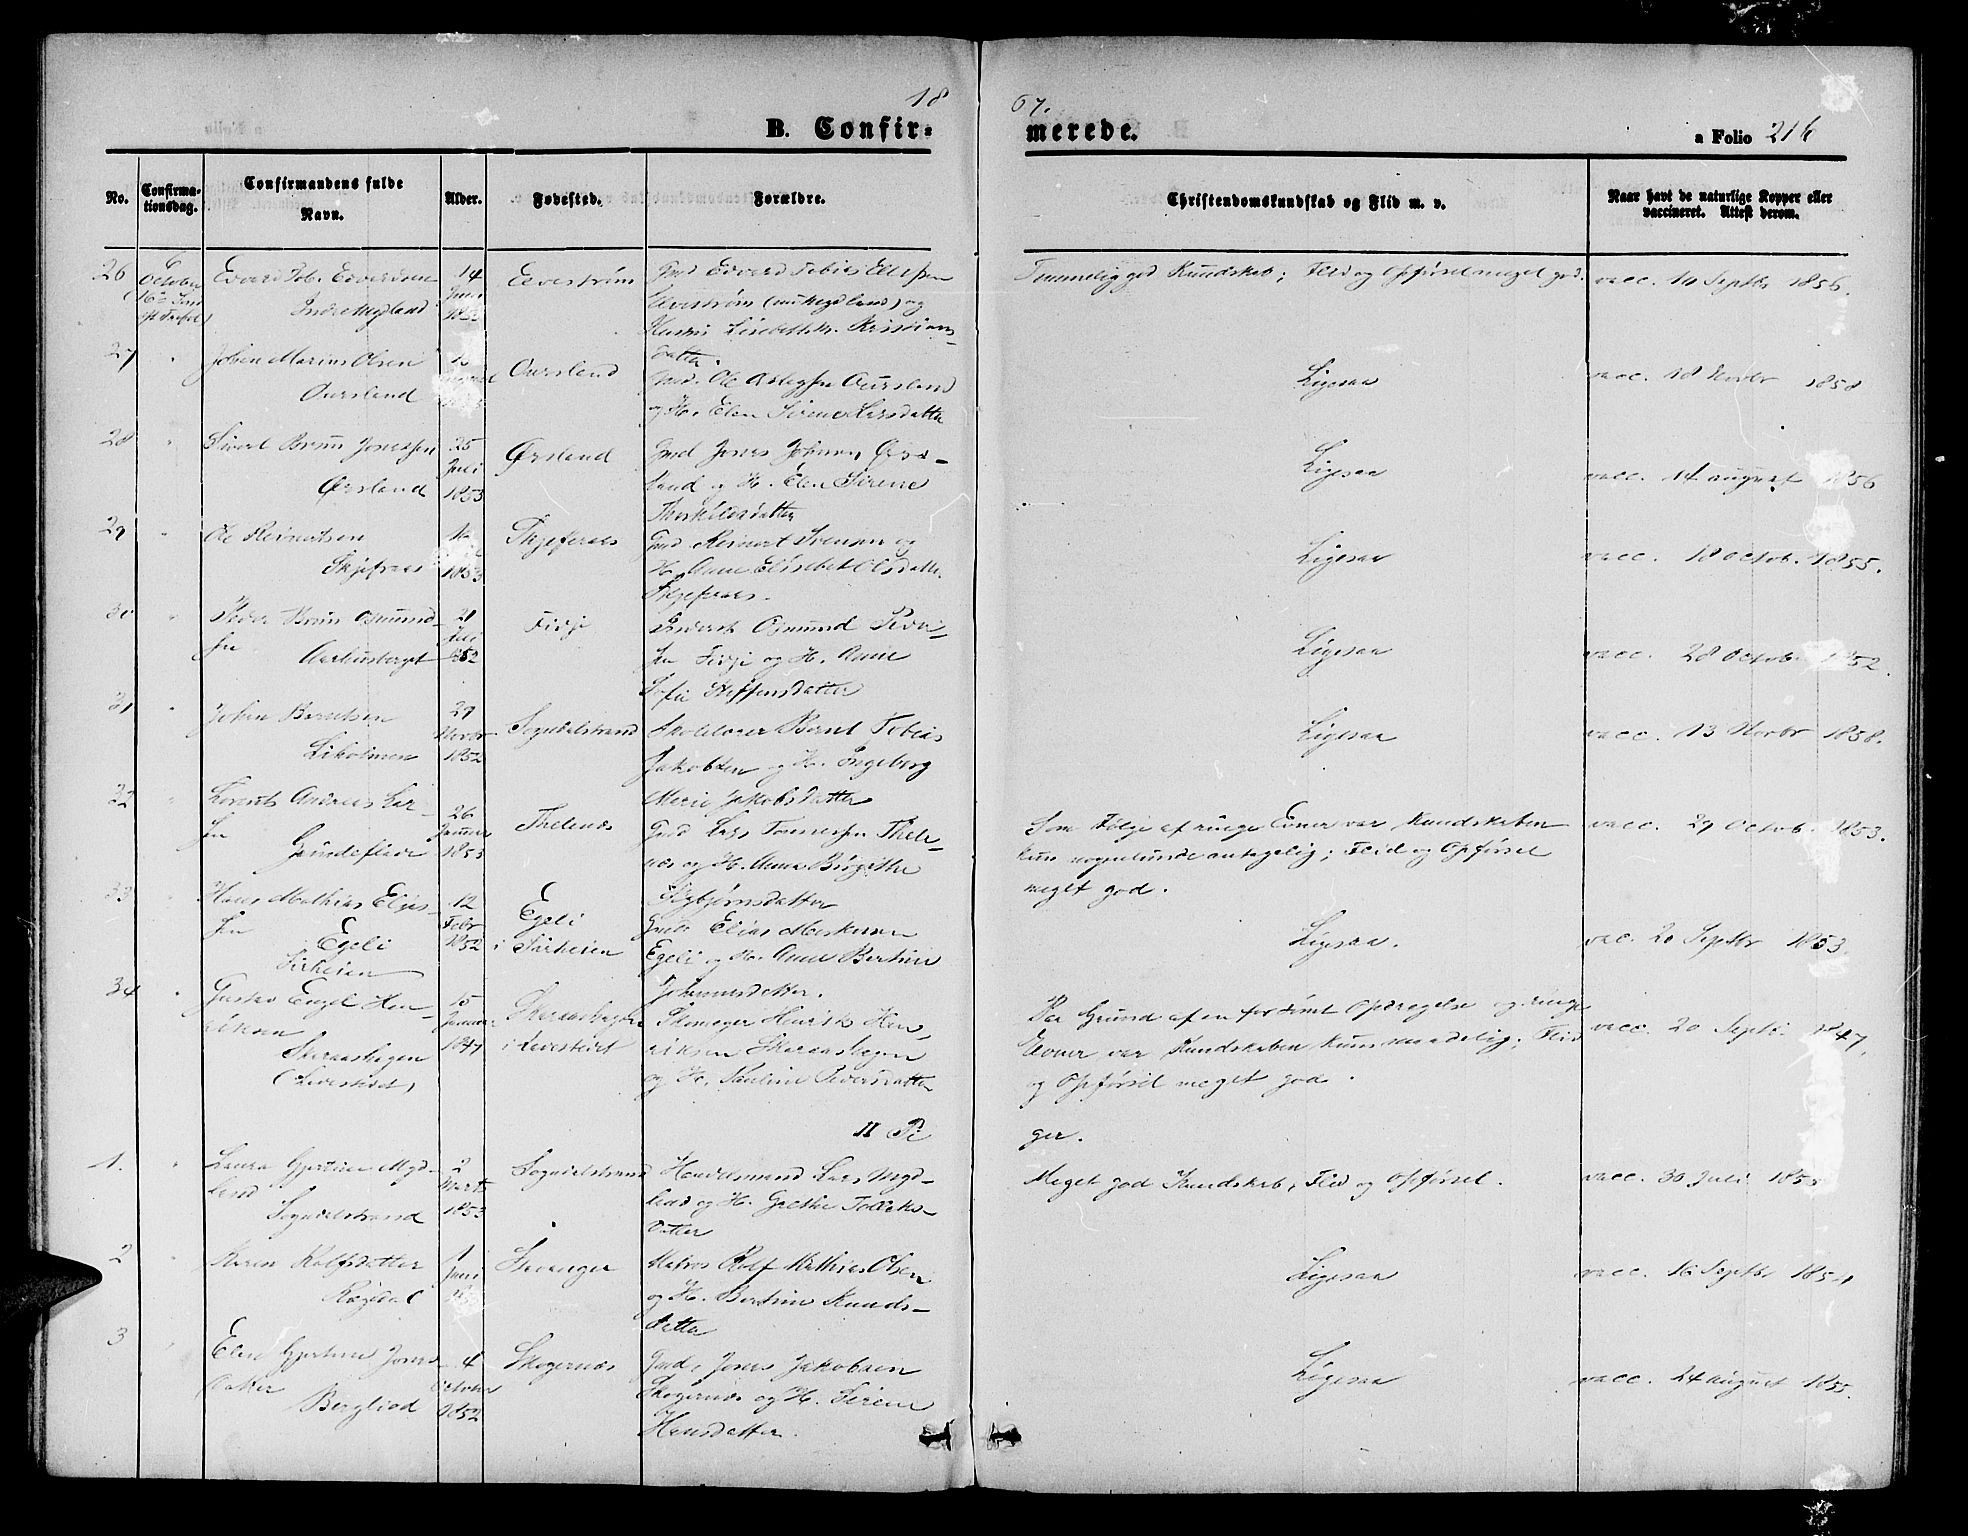 18
67.
B. Confir-
merede.
a Folio 216
No.
Confirma-
tionsdag.
Confirmandens fulde
Navn.
Alder.
Fødested.
Forældre.
Christendomskundskab og Flid m. v.
Naar havt de naturlige Kopper eller
vaccineret. Attest derom.
26
6
October
14
Juni
Gmd Edvard Tobias
og
Kristians-
datter.
Temmelig god Kundskab; Flid og Opførsel meget god.
vacc. 10 Septbr 1856.
27
Johan Marius Olsen
Oursland
Oursland
Gmd. Ole Aursland
og H. Elen Sirene Larsdatter
Ligesaa
vacc. 18 Novbr 1858
28
Sivert Bruun Jonassen
Ørsland
25
Juli
1853
Ørsland
Gmd Jonas Johnsen Ørs-
land og H. Elen Sirene
Therkildsdatter
Ligesaa
vacc. 14 august 1856
29
Ole Reinertsen
Skjefraas
1853
Gmd Reinert Svensen og
H. Anne Elisabet Olsdatter
Skjefraas.
Ligesaa
vacc. 18 Octob. 1855.
30
Peder Bruun Osmund-
sen
21
Juli
1852
Fidje
Osmund Peder-
sen Fidje og H. Anne
Sofie Steffensdatter
Ligesaa
vacc. 28 Octob 1852.
31
Johan Berntsen
Liholmen
29
Novbr
1852
Sogndalstrand
Skoleholder Bernt Tobias
Jakobsen og H. Ingeborg
Marie Jakobsdatter
Ligesaa
vacc. 13 Novbr 1858.
32
Lorents Andreas Lar-
sen
26
Januar
1853
Thelenæs
Gmd Lars Tønnessen Thele-
næs og H. Anna Birgithe
Som Følge af ringe Evner var Kundskaben
kun nogenlunde antagelig; Flid og Opførsel
meget god.
vacc. 29 Octob. 1853.
33
Hans Mathias Elias-
sen
Egeli
Sirheien
12
Febr
1852
Egeli
i Sirheien
Gmd. Elias
Egeli og H. Anne Bertine
Johannesdatter.
Ligesaa.
vacc. 20 Septbr 1853
34
Gustav Engel Hen-
riksen
Skaraashagen
(Livestødt)
15
Januar
1847
Skaraashagen
i Livestødt
Henrik Hen-
riksen Skaraashagen
og H. Pauline Pedersdatter
Paa Grund af en forsømt Opdragelse og ringe
Evner var Kundskaben kun maadelig; Flid
og Opførsel meget god.
vacc. 20 Septb. 1847.
II Pi
ger.
1.
Laura Gjertine Myd-
land
Sogndalstrand
2
Marts
1853
Sogndalstrand
Handelsmand Lars Myd-
land og H. Grethe Tollaks-
datter
Meget god Kundskab, Flid og Opførsel.
vacc. 30 Juli 1855
2
Karen Rolfsdatter
Røgdal
1
Juni
Stavanger
Matros Rolf Mathias Olsen
og H. Bertine Knuds-
datter
Ligesaa
vacc. 16 Septbr 1854
3
Elen Gjertine Jonas-
datter
Bergliod
4
October
1852
Skogernæs
Gmd. Jonas Jakobsen
Skogernæs og H. Sirene
Hansdatter.
Ligesaa
vacc. 24 august 1855.